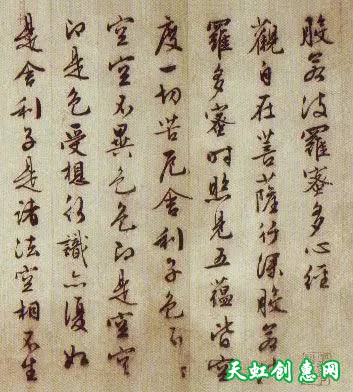 般若波羅蜜多心經
觀自在菩薩行深般若
羅多蜜時照見五蘊皆空
度一切苦厄舍利子色不
空空不異色色即是空空
即是色受想行識亦復如
是舍利子是諸法空相不生
天虹创惠网